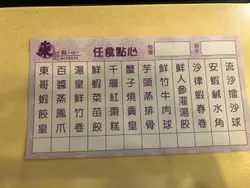 東
任食點心
東哥蝦餃皇
百醬蒸鳳爪
湯皇鮮竹卷
鮮蝦菜苗餃
千層紅棗糕
蟹子燒賣皇
芋頭蒸排骨
鮮竹牛肉球
鮮人參灌湯餃
沙律蝦春卷
安蝦鹹水角
流沙擂沙球